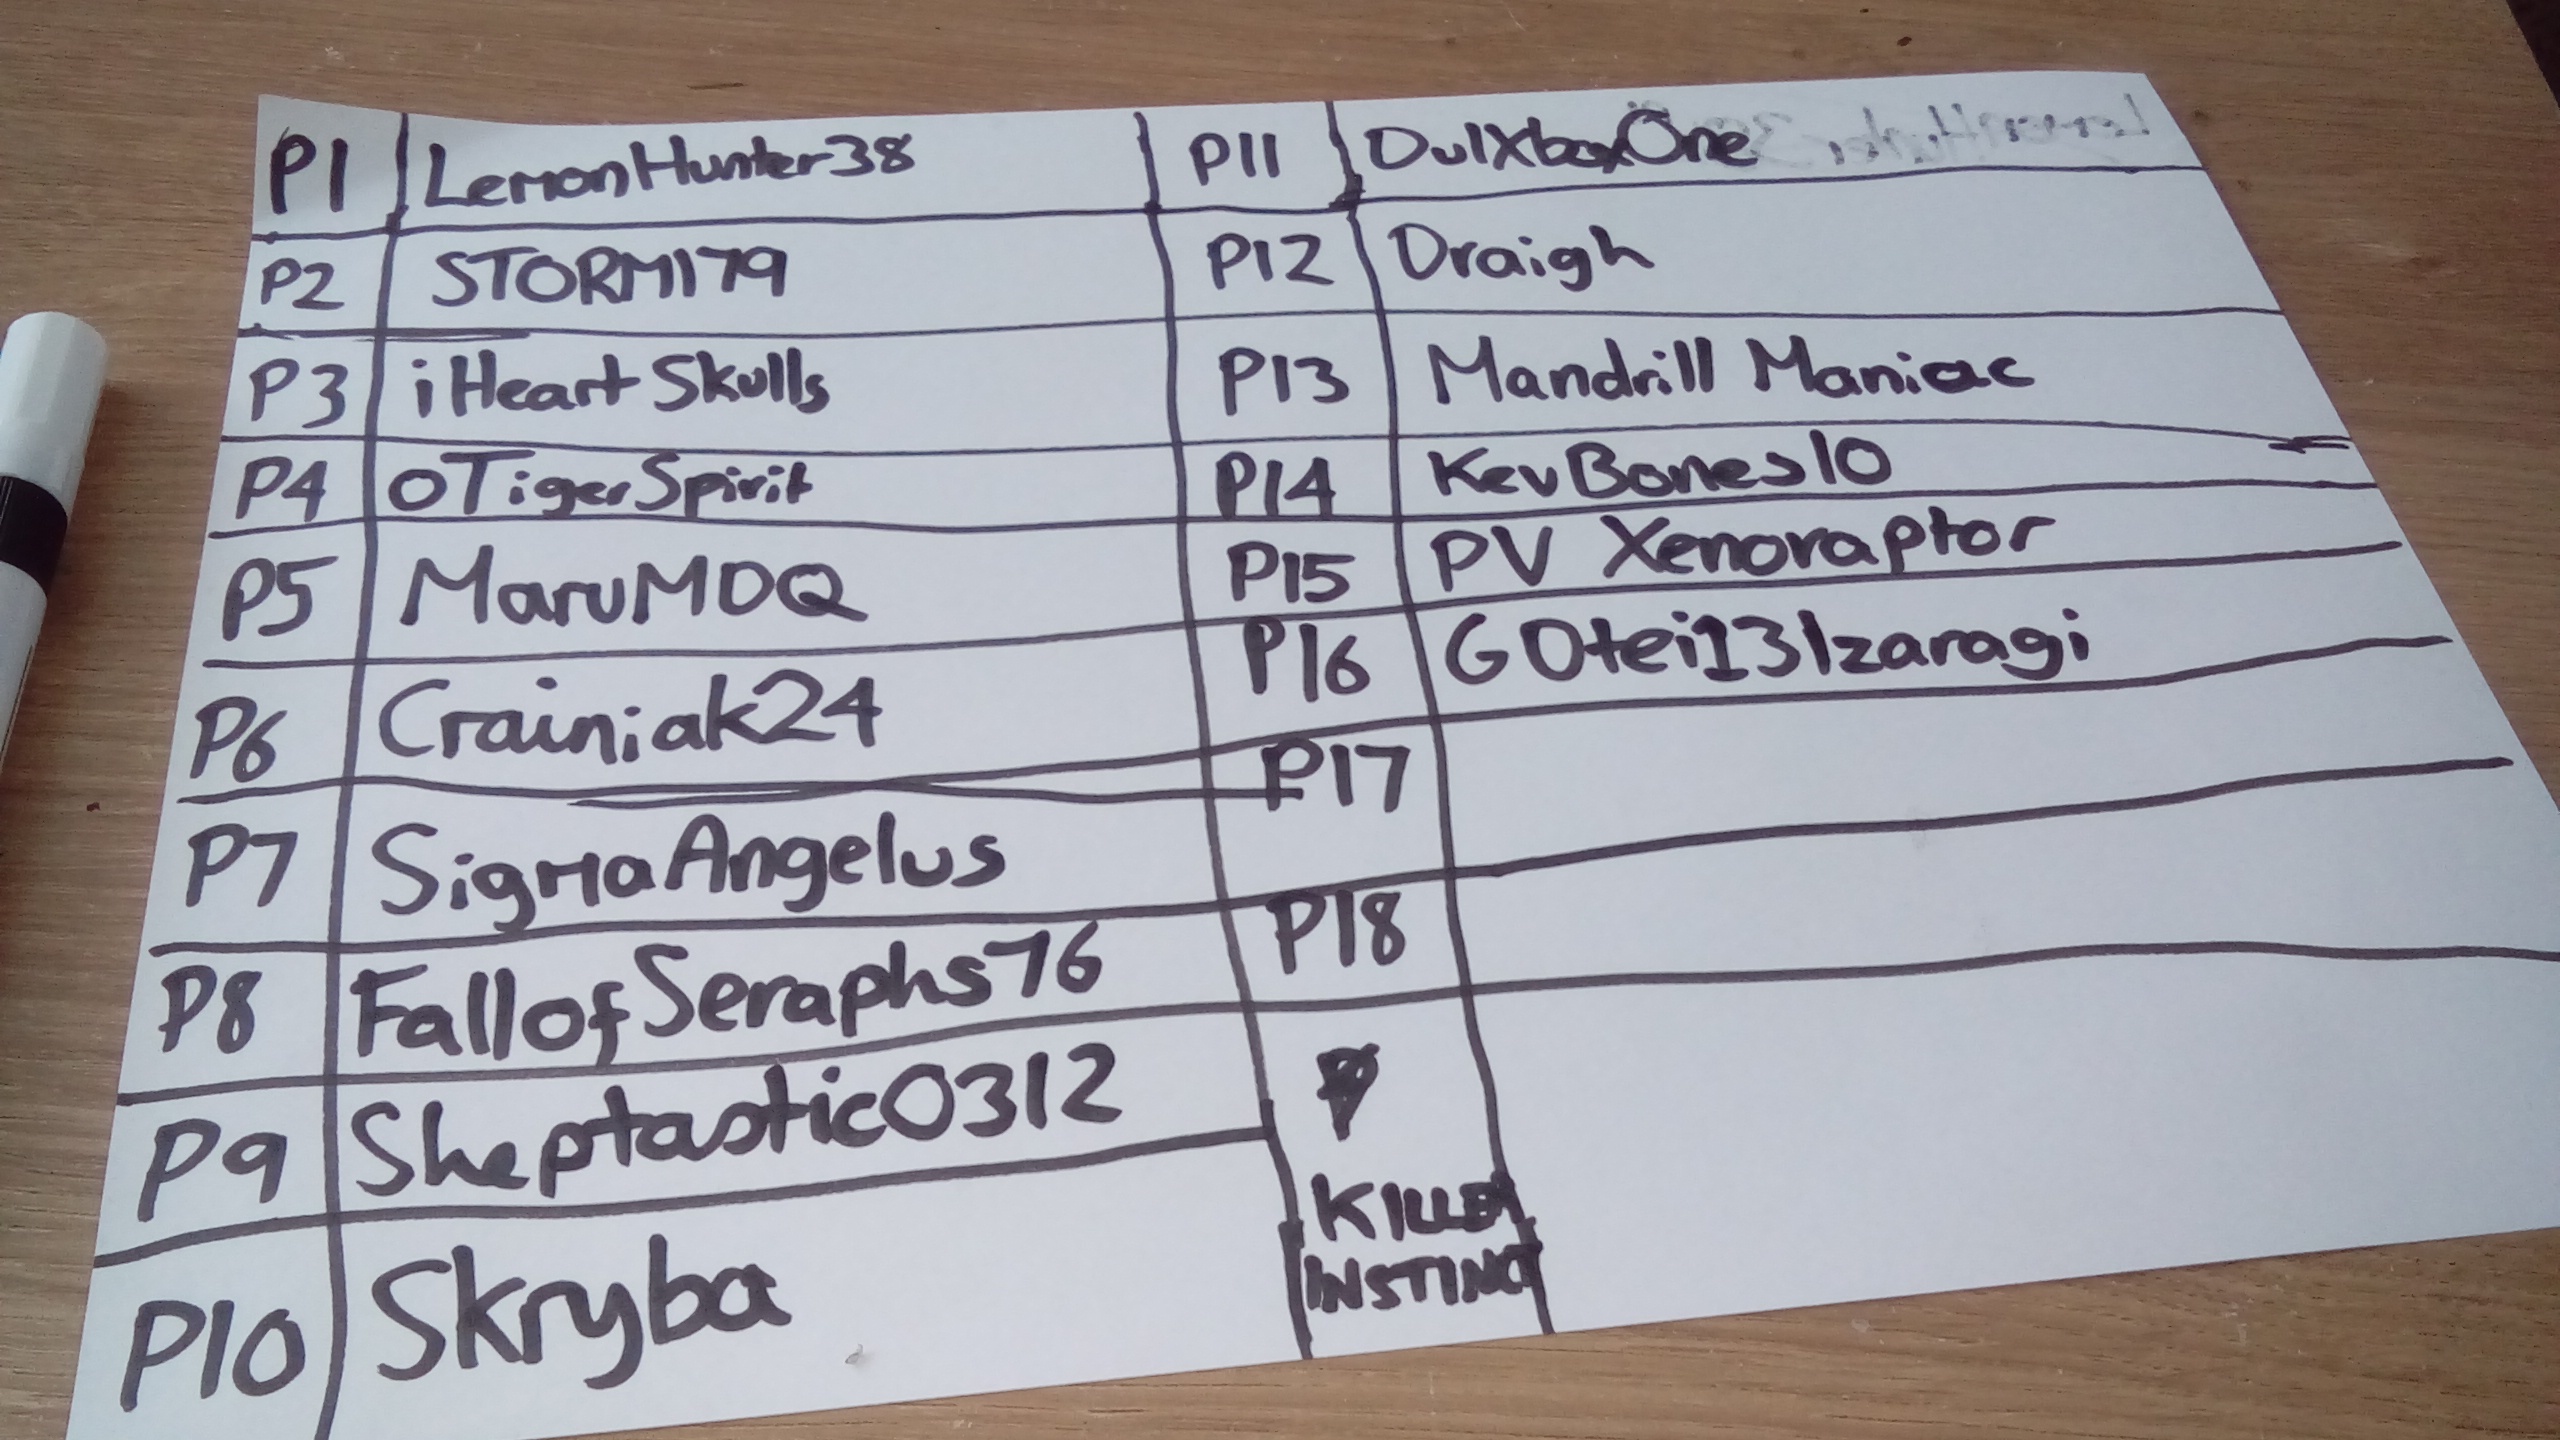 P1 LemonHunter38
P2 STORM179
P3 iHeartSkulls
P4 oTigerSpirit
P5 MaruMDQ
P6 Crainiak24
P7 SigmaAngelus
P8 FallofSeraphs76
P9 Sheptastic0312
P10 Skryba
P11 DulXboxOne
P12 Draigh
P13 Mandrill Maniac
P14 KevBones10
P15 PV Xenoraptor
P16 GOtei13Izaragi
P17
P18
KILLER
INSTINCT